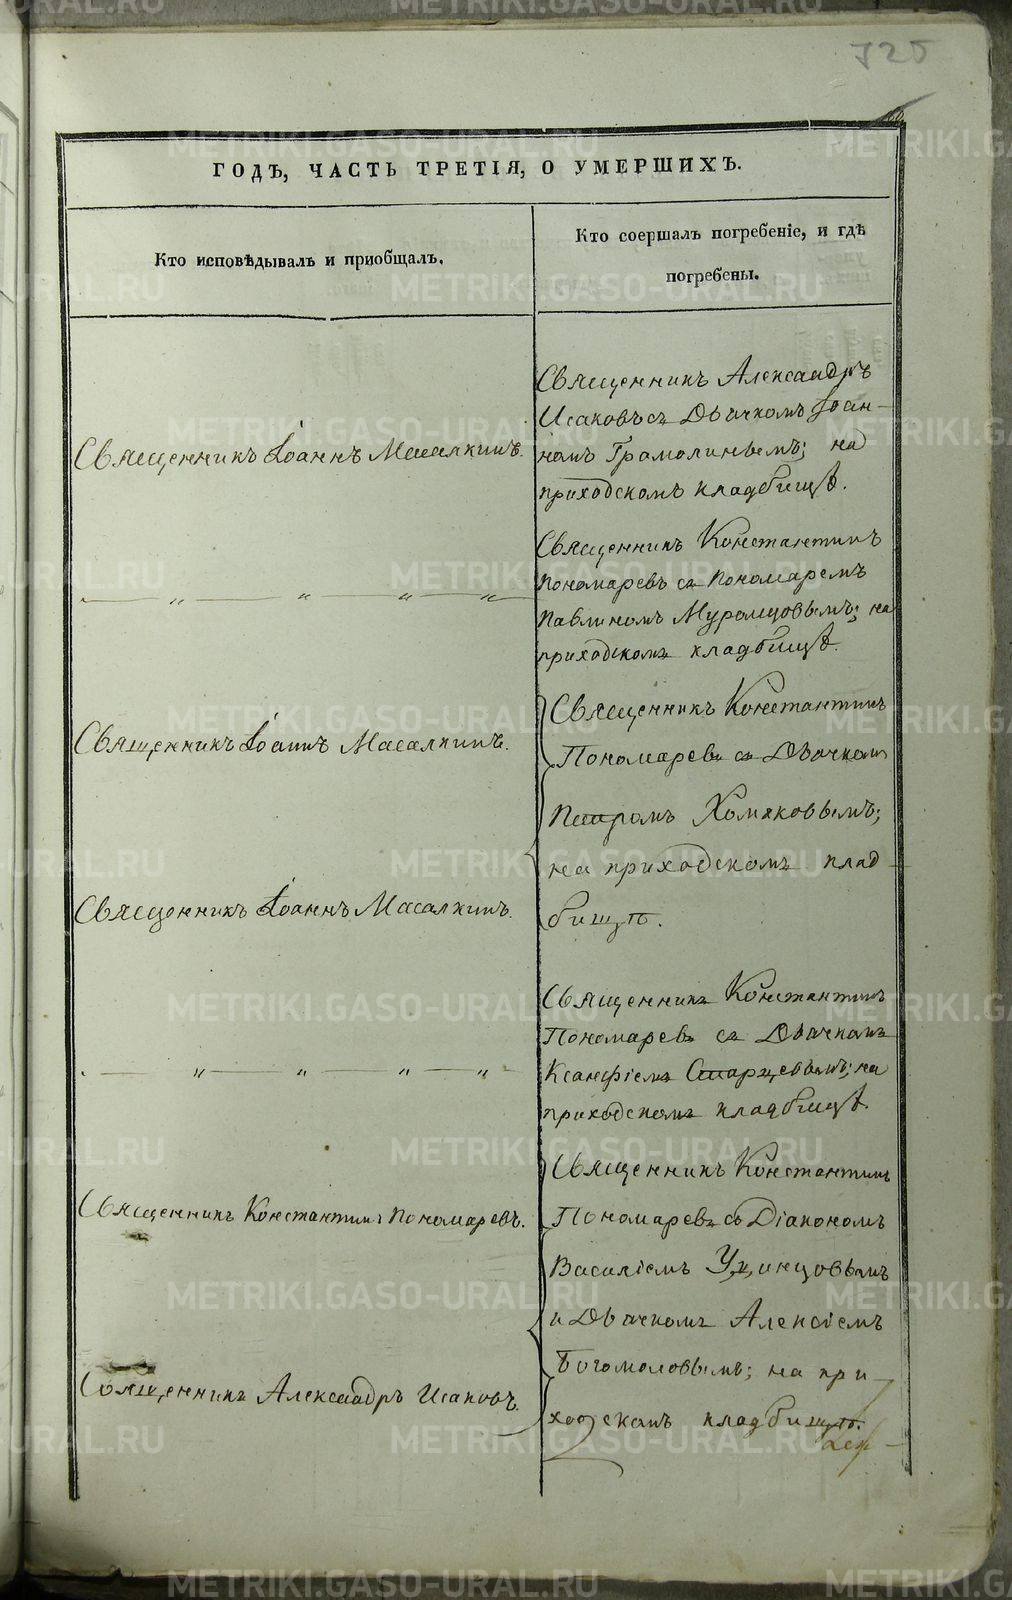 725
ГОДЪ, ЧАСТЬ ТРЕТІЯ, О УМЕРШИХЪ.
Кто исповѣдывалъ и пріобщалъ.
Кто соершалъ погребеніе, и гдѣ
погребены.
Священникъ Іоаннъ Масалкинъ.
Священникъ Александръ
Исаковъ съ Дьячкомъ Іоан-
номъ Грамолинымъ; на
приходскомъ кладбищѣ.
" " " "
Священникъ Константинъ
Пономаревъ съ Пономаремъ
Павлиномъ Муромцовымъ; на
приходскомъ кладбищѣ.
Священникъ Іоаннъ Масалкинъ.
Священникъ Іоаннъ Масалкинъ.
Священникъ Константинъ
Пономаревъ съ Дьячкомъ
Петромъ Хомяковымъ;
на приходскомъ клад-
бищѣ.
" " " "
Священникъ Константинъ
Пономаревъ съ Дьячкомъ
Ксанфіемъ Старцевымъ; на
приходскомъ кладбищѣ.
Священникъ Константинъ Пономаревъ.
Священникъ Александръ Исаковъ.
Священникъ Константинъ
Пономаревъ съ Діакономъ
Василіемъ Удинцовымъ
и Дьячкомъ Алексіемъ
Богомоловымъ; на при-
ходскомъ кладбищѣ.
METRIKI.GASO-URAL.RU